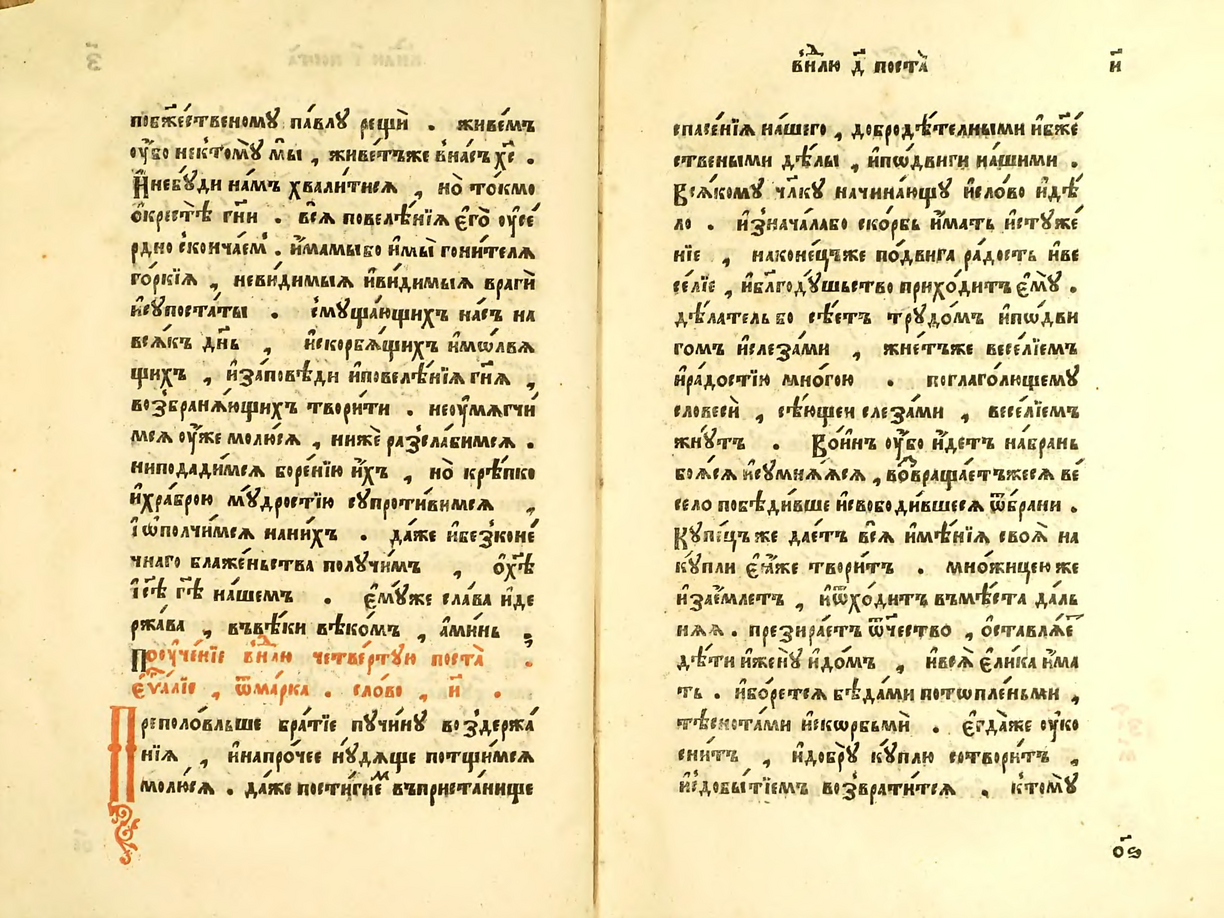 побж҃е́ственому па́влу рещѝ . живе́мъ
оу҆́бо нектомꙋ̀ мы̀ , живе́тъже в̾на́съ хс҃ .
И҆небꙋ́ди на́мъ хвали́тисѧ , но̀ то́кмо
ѡ҆крⷭ҇тѣ̀ гн҃и . всѧ̀ повелѣ́нїѧ є҆гѡ̀ оу҆се́
рдно скончае́м . и҆́мамыбо и҆мы̀ гони́телѧ
го́ркїѧ , неви́димыѧ и҆ви́димыѧ врагѝ
и҆сꙋпоста́ты . смꙋща́ющихъ на́съ на
всѧ́къ дн҃ь , и҆скорбѧ́щихъ и҆мѡлвѧ́
щихъ , и҆за́повѣди и҆повелѣ́нїѧ гн҃ѧ ,
возбранѧ́ющихъ твори́ти . неоу҆мѧгчи́
мсѧ оу҆́же молю́сѧ , нижѐ разсла́бимсѧ .
ниподади́мсѧ боре́нїю и҆́хъ , но̀ крѣ́пко
и҆хра́брою мꙋ́дростїю сꙋпроти́вимсѧ ,
і҆ѡполчи́мсѧ нани́хъ . да́же и҆безконе́
чнаго блаже́ньства полꙋчи́мъ , ѡ҆хрⷭ҇тѣ̀
і҆с҃ѣ гдⷭ҇ѣ на́шемъ . є҆мꙋ́же сла́ва и҆де
ржа́ва , въвѣ́ки вѣко́мъ , а҆ми́нь .
Поꙋче́нїе в̾нⷣлю четве́ртꙋю поста̀ .
є҆ѵⷢ҇а́лїе , ѿма́рка . сло́во , и҃ .
Преполо́вльше бра́тїе пꙋчи́нꙋ воздержа́
нїѧ , и҆напро́чее нꙋ́дѧще потщи́мсѧ
молю́сѧ . да́же пости́гнеⷨ въприста́нище
в̾нⷣлю д҃ поста̀
и҃
спасе́нїѧ на́шего , доброд́ѣтелными и҆бж҃е́
ствеными дѣ́лы , и҆по́двиги на́шими .
Всѧ́комꙋ чл҃кꙋ начина́ющꙋ и҆сло́во и҆дѣ́
ло . и҆знача́лабо ско́рбь и҆́мать и҆стꙋже́
нїе , наконе́цъже по́двига ра́дость и҆ве
се́лїе , и҆благодꙋ́шьство прихо́дитъ є҆мꙋ̀ .
дѣ́лательбо сѣ́етъ трꙋдо́мъ и҆по́дви
гомъ и҆слеза́ми , жне́тъже весе́лїемъ
и҆ра́достїю мно́гою . поглаго́лющемꙋ
словесѝ , сѣ́ющеи слеза́ми , весе́лїемъ
жнꙋ́тъ . Во́инъ оу҆́бо и҆́детъ на́брань
боѧ́сѧ и҆сꙋмнѧ́ѧсѧ , воⷥвраща́етъжесѧ ве́
село побѣди́вше и҆свободи́вшесѧ ѿбра́ни .
Кꙋпе́цъже дае́тъ всѧ̀ и҆мѣ́нїѧ своѧ̀ на
кꙋ́пли є҆ѧ́же твори́тъ . мно́жицеюже
и҆зае́млетъ , и҆ѿхо́дитъ въмѣ́ста да́ль
нѧѧ . презира́етъ ѿчество , ѡ҆ставлѧ́еⷮ
дѣ́ти и҆женꙋ̀ и҆до́мъ , и҆всѧ̀ є҆ли́ка и҆́ма
ть . и҆бо́ретсѧ бѣда́ми потопле́ньми ,
тѣснота́ми и҆ско́рбьмѝ . є҆гда́же оу҆ко
сни́тъ , и҆до́брꙋ кꙋ́плю сотвори́тъ ,
и҆здобы́тїемъ возврати́тсѧ . ктомꙋ̀